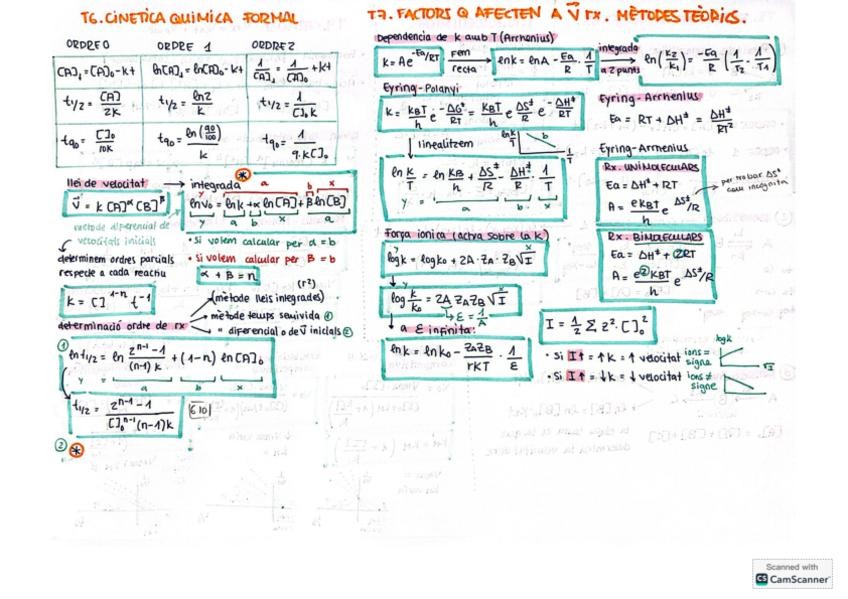 T6. CINETICA QUIMICA FORMAL
ORDRE 0 ORDRE 1 ORDRE 2
[A]t = [A]0 - kt
ln[A]t = ln[A]0 - kt
1/[A]t = 1/[A]0 + kt
t1/2 = [A]/2k
t1/2 = ln2/k
t1/2 = 1/[]0k
t90 = []0/10k
t90 = ln(90/100)/k
t90 = 1/9·k[]0
llei de velocitat → integrada
v = k[A]^α[B]^β
lnv0 = lnk + α ln[A] + β ln[B]
y a b x a
b x
mètode diferencial de
velocitats inicials
determinem ordres parcials
respecte a cada reactiu
• Si volem calcular per α = b
• Si volem calcular per β = b
α + β = n
k = []^1-n t^-1
(r²)
determinació ordre de rx
(mètode lleis integrades)
mètode temps semivida ①
" diferencial o de v inicials ②
①
ln t1/2 = ln 2^n-1 - 1/(n-1)k + (1-n) ln[A]0
y = a b x
t1/2 = 2^n-1 - 1/[]0^n-1(n-1)k
② *
T7. FACTORS Q AFECTEN A v rx. MÈTODES TEÒRICS.
Dependencia de k amb T (Arrhenius)
k = Ae^-Ea/RT
Fem
recta
lnk = lnA - Ea/R · 1/T
integrada
a 2 punts
ln(k2/k1) = -Ea/R (1/T2 - 1/T1)
Eyring-Polanyi
k = kBT/h e^-ΔG‡/RT = kBT/h e^ΔS‡/R e^-ΔH‡/RT
linealitzem
ln k/T
b
1/T
ln k/T = ln kB/h + ΔS‡/R - ΔH‡/R · 1/T
y = a b x
Eyring-Arrhenius
Ea = RT + ΔH‡ = ΔH‡/RT²
Eyring-Arrhenius
Rx. UNIMOLECULARS
Ea = ΔH‡ + RT
A = ekBT/h e^ΔS‡/R
per trobar ΔS‡
com incògnita
Rx. BIMOLECULARS
Ea = ΔH‡ + 2RT
A = e²kBT/h e^ΔS‡/R
Força ionica (activa sobre la k)
logk = logk0 + 2A·ZA·ZB√I
y x
log k/k0 = 2A ZAZB√I
→ a ε infinita:
lnk = lnk0 - ZAZB/rKT · 1/ε
I = 1/2 Σ z²·[]0²
• Si I↑ = ↑k = ↑ velocitat
ions =
signe
• Si I↑ = ↓k = ↓ velocitat
ions ≠
signe
logk
√I
Scanned with
CS CamScanner